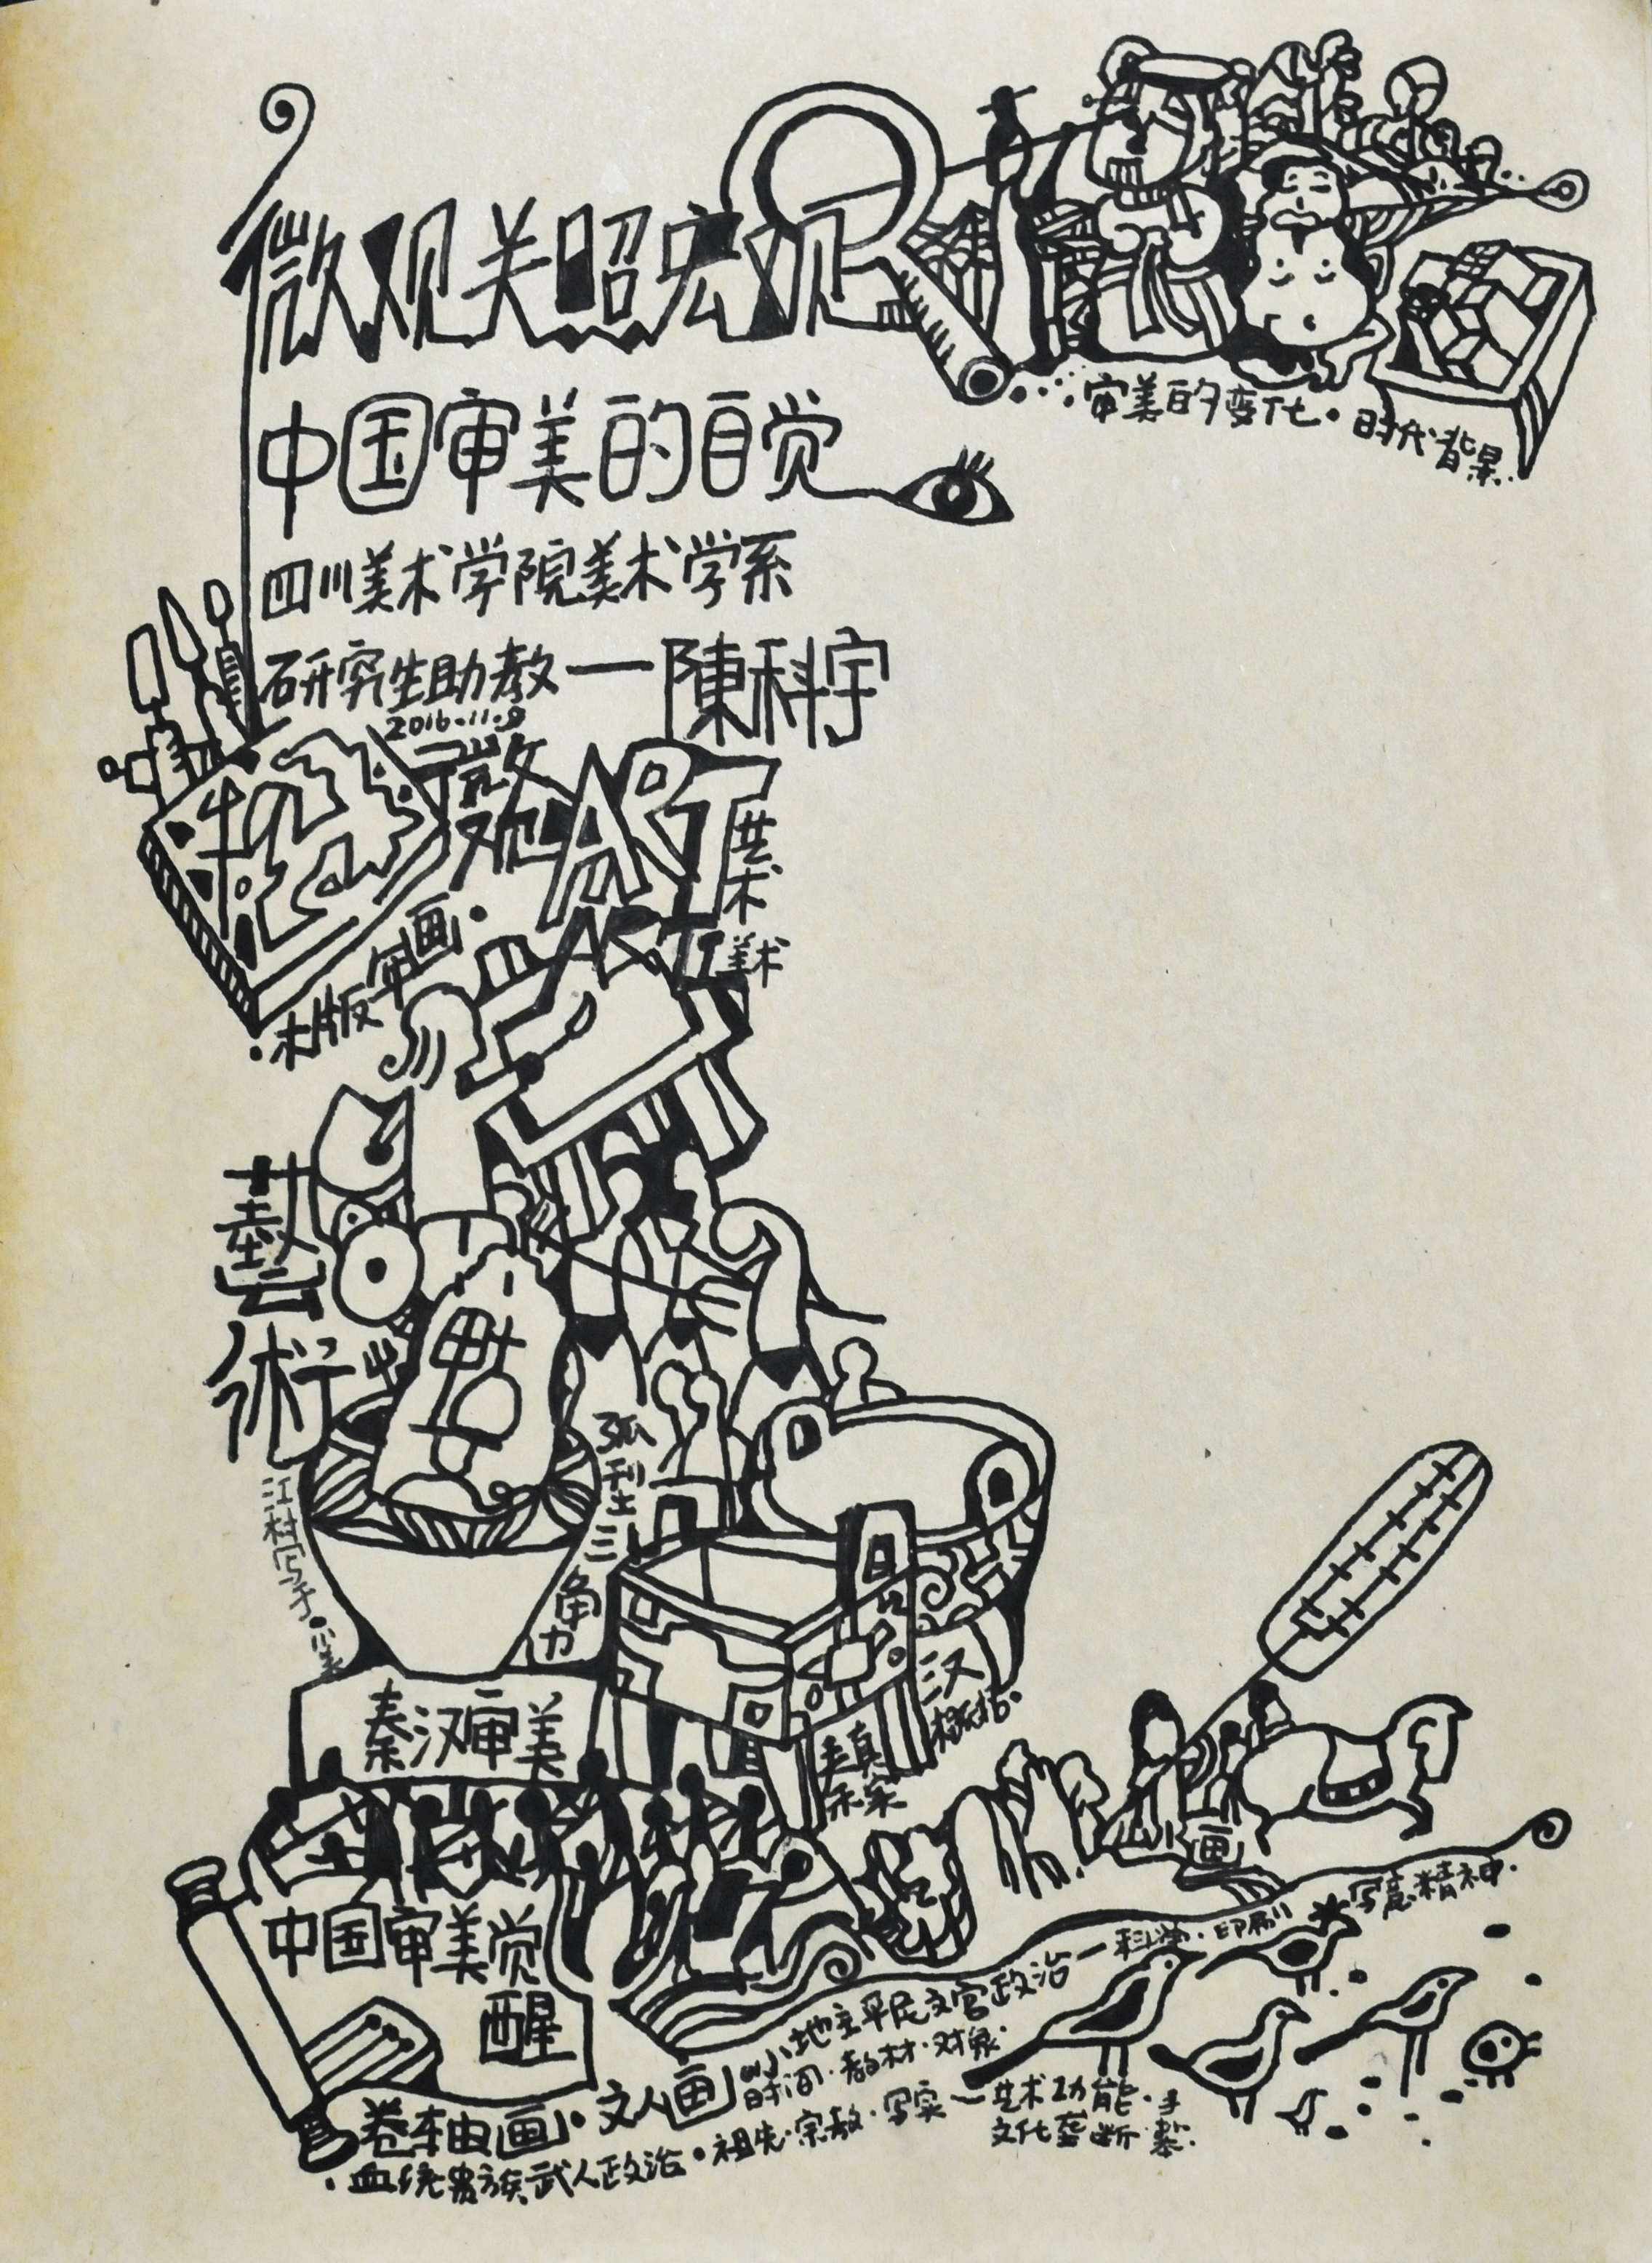 微观关照宏观
审美的变化·时代背景
中国审美的自觉
四川美术学院美术学系
研究生助教一陳科宇
2016.11.9
微观
ART
艺术
ART
美术
·木版年画·
藝術
孤型三角力
秦汉审美
汉
概括·
真实
画
中国审美觉醒
小地主平民文官政治一科学·印刷
写意精神·
时间·教材·对象·
卷轴画·文人画
·血统贵族武人政治·祖先·宗教·写实一艺术功能·
文化垄断·